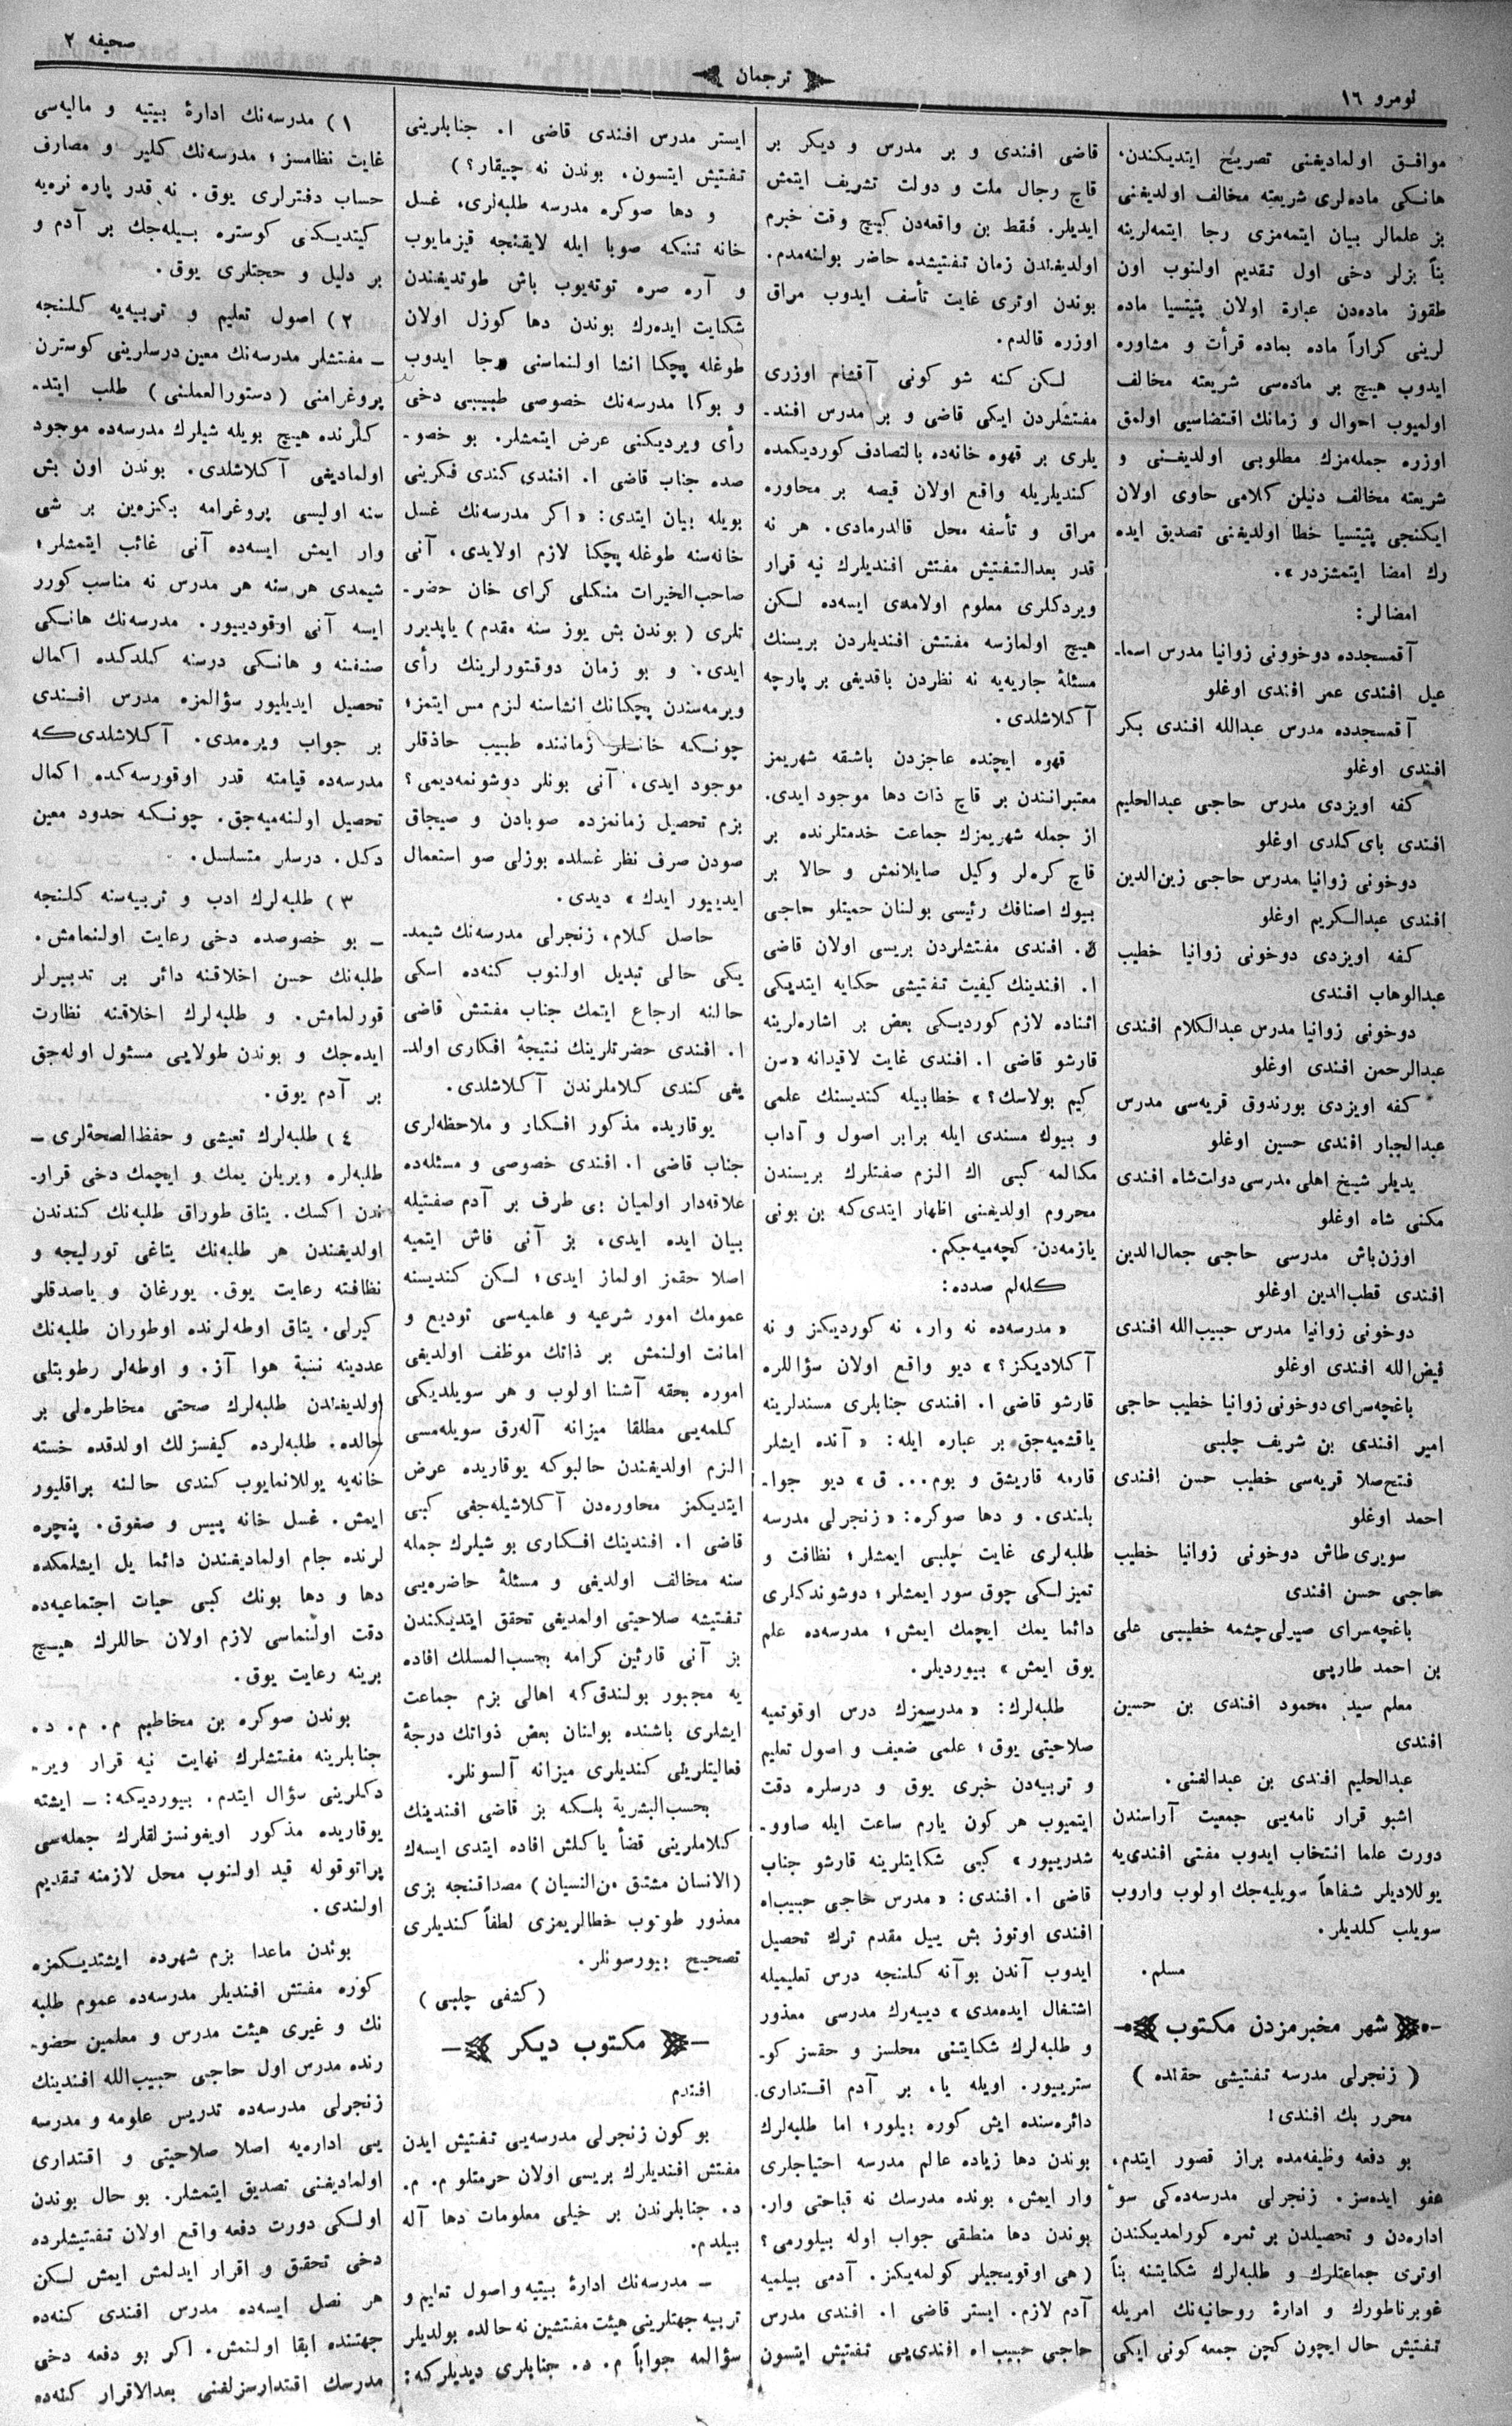 صحیفه ٢
ترجمان
نومرو ١٦
موافق اولمادیغنی تصریح ایتدیکندن،
هانکی ماده‌لری شریعته مخالف اولدیغنی
بز علمالر بیان ایتمه‌مزی رجا ایتمه‌لرینه
بناً بزلر دخی اول تقدیم اولنوب اون
طقوز ماده‌دن عبارة اولان پتیتسیا ماده
لرینی کراراً ماده بماده قرأت و مشاوره
ایدوب هیچ بر ماده‌سی شریعته مخالف
اولمیوب احوال و زمانك اقتضاسیی اولمق
اوزره جمله‌مزك مطلوبی اولدیغنی و
شریعته مخالف دنیلن کلامی حاوی اولان
ایکنجی پتیتسیا خطا اولدیغنی تصدیق ایده
رك امضا ایتمشزدر».
امضالر:
آقمسجدده دوخوونی زوانیا مدرس اسما-
عیل افندی عمر افندی اوغلو
آقمسجدده مدرس عبدالله افندی بکر
افندی اوغلو
کفه اویزدی مدرس حاجی عبدالحلیم
افندی بای کلدی اوغلو
دوخونی زوانیا مدرس حاجی زین‌الدین
افندی عبدالکریم اوغلو
کفه اویزدی دوخونی زوانیا خطیب
عبدالوهاب افندی
دوخونی زوانیا مدرس عبدالکلام افندی
عبدالرحمن افندی اوغلو
کفه اویزدی بورندوق قریه‌سی مدرس
عبدالجبار افندی حسین اوغلو
یدیلر شیخ اهلی مدرسی دولت‌شاه افندی
مکنی شاه اوغلو
اوزن‌باش مدرسی حاجی جمال‌الدین
افندی قطب‌الدین اوغلو
دوخونی زوانیا مدرس حبیب‌الله افندی
فیض‌الله افندی اوغلو
باغچه‌سرای دوخونی زوانیا خطیب حاجی
امیر افندی بن شریف چلبی
فتح‌صلا قریه‌سی خطیب حسن افندی
احمد اوغلو
سویری‌طاش دوخونی زوانیا خطیب
حاجی حسن افندی
باغچه‌سرای صیرلی‌چشمه خطیبی علی
بن احمد طارپی
معلم سید محمود افندی بن حسین
افندی
عبدالحلیم افندی بن عبدالغنی.
اشبو قرار نامه‌یی جمعیت آراسندن
دورت علما انتخاب ایدوب مفتی افندی‌یه
یوللادیلر شفاهاً سویلیه‌جك اولوب واروب
سویلب کلدیلر.
مسلم.
شهر مخبرمزدن مکتوب
( زنجرلی مدرسه تفتیشی حقنده )
محرر بك افندی!
بو دفعه وظیفه‌مده براز قصور ایتدم،
عفو ایده‌سز. زنجرلی مدرسه‌ده‌کی سوٴ
اداره‌دن و تحصیلدن بر ثمره کورلمدیکندن
اوتری جماعتلرك و طلبه‌لرك شکایتنه بناً
غوبرناطورك و ادارهٔ روحانیه‌نك امریله
تفتیش حال ایچون کچن جمعه کونی ایکی
قاضی افندی و بر مدرس و دیکر بر
قاچ رجال ملت و دولت تشریف ایتمش
ایدیلر. فقط بن واقعه‌دن کیچ وقت خبرم
اولدیغندن زمان تفتیشده حاضر بولنه‌مدم.
بوندن اوتری غایت تأسف ایدوب مراق
اوزره قالدم.
لکن کنه شو کونی آقشام اوزری
مفتشلردن ایکی قاضی و بر مدرس افند-
یلری بر قهوه خانه‌ده بالتصادف کوردیکمده
کندیلریله واقع اولان قیصه بر محاوره
مراق و تأسفه محل قالدرمادی. هر نه
قدر بعدالتفتیش مفتش افندیلرك نیه قرار
ویردکلری معلوم اولامدی ایسه‌ده لکن
هیچ اولمازسه مفتش افندیلردن بریسنك
مسئلهٔ جاریه‌یه نه نظردن باقدیغی بر پارچه
آکلاشلدی.
قهوه ایچنده عاجزدن باشقه شهریمز
معتبرانندن بر قاچ ذات دها موجود ایدی.
از جمله شهریمزك جماعت خدمتلرنده بر
قاچ کره‌لر وکیل صایلانمش و حالا بر
بیوك اصنافك رئیسی بولنان حمیتلو حاجی
ق. افندی مفتشلردن بریسی اولان قاضی
ا. افندینك کیفیت تفتیشی حکایه ایتدیکی
اثناده لازم کوردیکی بعض بر اشاره‌لرینه
قارشو قاضی ا. افندی غایت لاقیدانه «سن
کیم بولاسك؟» خطابیله کندیسنك علمی
و بیوك مسندی ایله برابر اصول و آداب
مکالمه کبی اك الزم صفتلرك بریسندن
محروم اولدیغنی اظهار ایتدی‌که بن بونی
یازمه‌دن کچه‌میه‌جکم.
کله‌لم صدده:
« مدرسه‌ده نه وار، نه کوردیکز و نه
آکلادیکز؟» دیو واقع اولان سؤاللره
قارشو قاضی ا. افندی جنابلری مسندلرینه
یاقشمیه‌جق بر عباره ایله: « آنده ایشلر
قارمه قاریشق و بوم... ق» دیو جوا-
بلندی. و دها صوکره: «زنجرلی مدرسه
طلبه‌لری غایت چلبی ایمشلر؛ نظافت و
تمیزلکی چوق سور ایمشلر؛ دوشوندکلری
دائما یمك ایچمك ایمش؛ مدرسه‌ده علم
یوق ایمش» بیوردیلر.
طلبه‌لرك: «مدرسمزك درس اوقوتمیه
صلاحیتی یوق؛ علمی ضعیف و اصول تعلیم
و تربیه‌دن خبری یوق و درسلره دقت
ایتمیوب هر کون یارم ساعت ایله صاوو-
شدریپور» کبی شکایتلرینه قارشو جناب
قاضی ا. افندی: « مدرس حاجی حبیب‌اه
افندی اوتوز بش ییل مقدم ترك تحصیل
ایدوب آندن بوآنه کلنجه درس تعلیمیله
اشتغال ایده‌مدی» دییه‌رك مدرسی معذور
و طلبه‌لرك شکایتنی محلسز و حقسز کو-
سترییور. اویله یا، بر آدم اقتداری
دائره‌سنده ایش کوره بیلور؛ اما طلبه‌لرك
بوندن دها زیاده عالم مدرسه احتیاجلری
وار ایمش، بونده مدرسك نه قباحتی وار.
بوندن دها منطقی جواب اوله بیلورمی؟
( هی اوقویجیلر کولمه‌یکز. آدمی بیلمیه
آدم لازم. ایستر قاضی ا. افندی مدرس
حاجی حبیب اه افندی‌یی تفتیش ایتسون
ایستر مدرس افندی قاضی ا. جنابلرینی
تفتیش ایتسون، بوندن نه چیقار؟)
و دها صوکره مدرسه طلبه‌لری، غسل
خانه تنکه صوبا ایله لایقنجه قیزمایوب
و آره صره توته‌یوب باش طوتدیغندن
شکایت ایده‌رك بوندن دها کوزل اولان
طوغله پچکا انشا اولنماسنی رجا ایدوب
و بوکا مدرسه‌نك خصوصی طبیبی دخی
رأی ویردیکنی عرض ایتمشلر. بو خصو-
صده جناب قاضی ا. افندی کندی فکرینی
بویله بیان ایتدی: « اکر مدرسه‌نك غسل
خانه‌سنه طوغله پچکا لازم اولایدی، آنی
صاحب‌الخیرات منکلی کرای خان حضر-
تلری ( بوندن بش یوز سنه مقدم ) یاپدیرر
ایدی. و بو زمان دوقتورلرینك رأی
ویرمه‌سندن پچکانك انشاسنه لزم مس ایتمز؛
چونکه خانلر زماننده طبیب حاذقلر
موجود ایدی، آنی بونلر دوشونمه‌دیمی؟
بزم تحصیل زمانمزده صوبادن و صیجاق
صودن صرف نظر غسلده بوزلی صو استعمال
ایدییور ایدك» دیدی.
حاصل کلام، زنجرلی مدرسه‌نك شیمد-
یکی حالی تبدیل اولنوب کنه‌ده اسکی
حالنه ارجاع ایتمك جناب مفتش قاضی
ا. افندی حضرتلرینك نتیجهٔ افکاری اولد-
یغی کندی کلاملرندن آکلاشلدی.
یوقاریده مذکور افکار و ملاحظه‌لری
جناب قاضی ا. افندی خصوصی و مسئله‌ده
علاقه‌دار اولمیان بی طرف بر آدم صفتیله
بیان ایده ایدی، بز آنی فاش ایتمیه
اصلا حقمز اولماز ایدی؛ لکن کندیسنه
عمومك امور شرعیه و علمیه‌سی تودیع و
امانت اولنمش بر ذاتك موظف اولدیغی
اموره بحقه آشنا اولوب و هر سویلدیکی
کلمه‌یی مطلقا میزانه آله‌رق سویله‌مسی
الزم اولدیغندن حالبوکه یوقاریده عرض
ایتدیکمز محاوره‌دن آکلاشیله‌جغی کبی
قاضی ا. افندینك افکاری بو شیلرك جمله
سنه مخالف اولدیغی و مسئلهٔ حاضره‌یی
تفتیشه صلاحیتی اولمدیغی تحقق ایتدیکندن
بز آنی قارئین کرامه بحسب‌المسلك افاده
یه مجبور بولندق‌که اهالی بزم جماعت
ایشلری باشنده بولنان بعض ذواتك درجهٔ
فعالیتلرینی کندیلری میزانه آلسونلر.
بحسب‌البشریة بلکه بز قاضی افندینك
کلاملرینی قضأ یاکلش افاده ایتدی ایسه‌ك
(الانسان مشتق من‌النسیان) مصداقنجه بزی
معذور طوتوب خطالریمزی لطفاً کندیلری
تصحیح بیورسونلر.
( کشفی چلبی )
مکتوب دیکر
افندم
بو کون زنجرلی مدرسه‌یی تفتیش ایدن
مفتش افندیلرك بریسی اولان حرمتلو م. م.
د. جنابلرندن بر خیلی معلومات دها آله
بیلدم.
— مدرسه‌نك ادارهٔ بیتیه و اصول تعلیم و
تربیه جهتلرینی هیئت مفتشین نه حالده بولدیلر
سؤالمه جواباً م. د. جنابلری دیدیلرکه:
١) مدرسه‌نك ادارهٔ بیتیه و مالیه‌سی
غایت نظامسز؛ مدرسه‌نك کلیر و مصارف
حساب دفترلری یوق. نه قدر پاره نره‌یه
کیتدیکنی کوستره بیله‌جك بر آدم و
بر دلیل و حجتلری یوق.
٢) اصول تعلیم و تربیه‌یه کلنجه
— مفتشلر مدرسه‌نك معین درسلرینی کوسترن
پروغرامنی (دستورالعملنی) طلب ایتد-
کلرنده هیچ بویله شیلرك مدرسه‌ده موجود
اولمادیغی آکلاشلدی. بوندن اون بش
سنه اولیسی پروغرامه بکزه‌ین بر شی
وار ایمش ایسه‌ده آنی غائب ایتمشلر؛
شیمدی هر سنه هر مدرس نه مناسب کورر
ایسه آنی اوقودییور. مدرسه‌نك هانکی
صنفنه و هانکی درسنه کلدکده اکمال
تحصیل ایدیلیور سؤالمزه مدرس افندی
بر جواب ویره‌مدی. آکلاشلدی‌که
مدرسه‌ده قیامته قدر اوقورسه‌کده اکمال
تحصیل اولنه‌میه‌جق. چونکه حدود معین
دکل. درسلر متسلسل.
٣) طلبه‌لرك ادب و تربیه‌سنه کلنجه
— بو خصوصده دخی رعایت اولنمامش.
طلبه‌نك حسن اخلاقنه دائر بر تدبیرلر
قورلمامش. و طلبه‌لرك اخلاقنه نظارت
ایده‌جك و بوندن طولایی مسئول اوله‌جق
بر آدم یوق.
٤) طلبه‌لرك تعیشی و حفظ‌الصحة‌لری —
طلبه‌لره ویریلن یمك و ایچمك دخی قرار-
ندن اکسك. یتاق طوراق طلبه‌نك کندندن
اولدیغندن هر طلبه‌نك یتاغی تورلیجه و
نظافته رعایت یوق. یورغان و یاصدقلر
کیرلی. یتاق اوطه‌لرنده اوطوران طلبه‌نك
عددینه نسبة هوا آز. و اوطه‌لر رطوبتلی
اولدیغندن طلبه‌لرك صحتی مخاطره‌لی بر
حالده. طلبه‌لرده کیفسزلك اولدقده خسته
خانه‌یه یوللانمایوب کندی حالنه براقلیور
ایمش. غسل خانه پیس و صغوق. پنچره
لرنده جام اولمادیغندن دائما یل ایشلمکده
دها و دها بونك کبی حیات اجتماعیه‌ده
دقت اولنماسی لازم اولان حاللرك هیچ
برینه رعایت یوق.
بوندن صوکره بن مخاطبم م. م. د.
جنابلرینه مفتشلرك نهایت نیه قرار ویر-
دکلرینی سؤال ایتدم. بیوردیکه: — ایشته
یوقاریده مذکور اویغونسزلقلرك جمله‌سی
پراتوقوله قید اولنوب محل لازمنه تقدیم
اولندی.
بوندن ماعدا بزم شهرده ایشتدیکمزه
کوره مفتش افندیلر مدرسه‌ده عموم طلبه
نك و غیری هیئت مدرس و معلمین حضو-
رنده مدرس اول حاجی حبیب‌الله افندینك
زنجرلی مدرسه‌ده تدریس علومه و مدرسه
یی اداره‌یه اصلا صلاحیتی و اقتداری
اولمادیغنی تصدیق ایتمشلر. بو حال بوندن
اولکی دورت دفعه واقع اولان تفتیشلرده
دخی تحقق و اقرار ایدلمش ایمش لکن
هر نصل ایسه‌ده مدرس افندی کنه‌ده
جهتنده ابقا اولنمش. اکر بو دفعه دخی
مدرسك اقتدارسزلغنی بعدالاقرار کنه‌ده